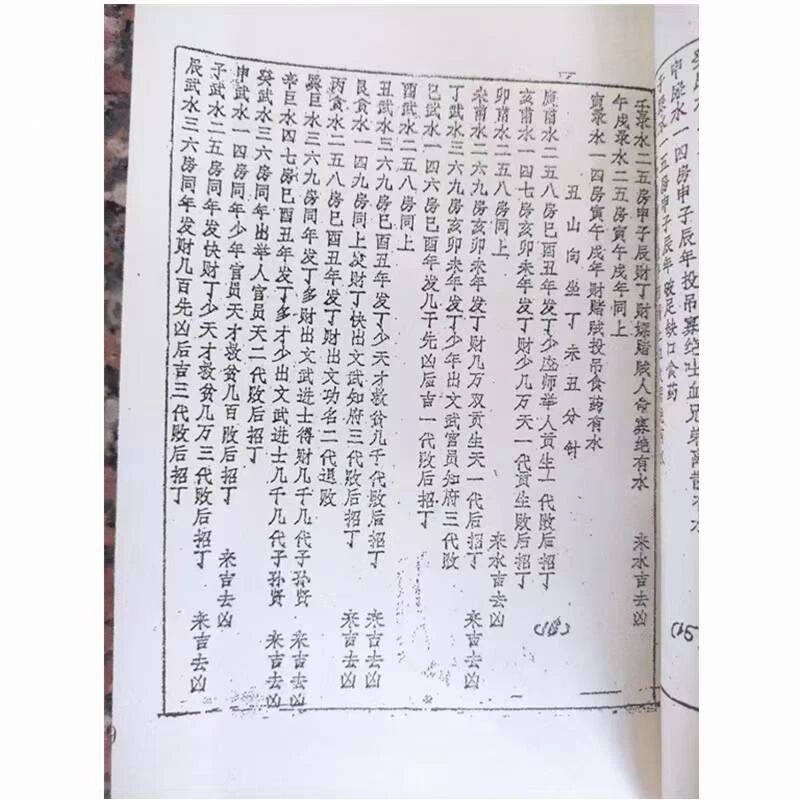 申梁水一四房申子辰年投吊寡绝吐血兄弟离
子梁水一五房申子辰年破足缺口食药
壬录水二五房申子辰财丁财嫖赌贼人命寡绝有水 来水吉去凶
午戌录水二五房寅午戌年同上
寅录水一四房寅午戌年财赌贼投吊食药有水
丑山向坐丁未丑分针
庚甫水二五八房巳酉丑年发丁少 师举人贡生一代败后招丁 (16)
亥甫水一四七房亥卯未年发丁财少几万天一代贡生败后招丁
卯甫水二五八房同上 来水吉去凶
未甫水二六九房亥卯未年发丁财几万双贡生天一代后招丁 来吉去凶
丁武水三六九房亥卯未年发丁少年出文武官员知府三代败
巳武水一四六房巳酉丑年发几千先凶后吉一代败后招丁
酉武水二五八房同上
丑武水三六九房巳酉丑年发丁少天才救贫几千代败后招丁 来吉去凶
艮贪水一四九房同上发财丁快出文武知府三代败后招丁 来吉去凶
丙贪水二五八房巳酉丑年发丁财出文功名二代退败
巽巨水三六九房同年发丁多财出文武进士得财几千几代子孙贤 来吉去凶
辛巨水四七房巳酉丑年发丁多才少出文武进士几千几代子孙贤 来吉去凶
癸武水三六房同年出举人官员天二代败后招丁
申武水一四房同年少年官员天才救贫几百败后招丁 来吉去凶
子武水二五房同年发快财丁少天才救贫几万三代败后招丁 来吉去凶
辰武水三六房同年发财几百先凶后吉三代败后招丁
(15